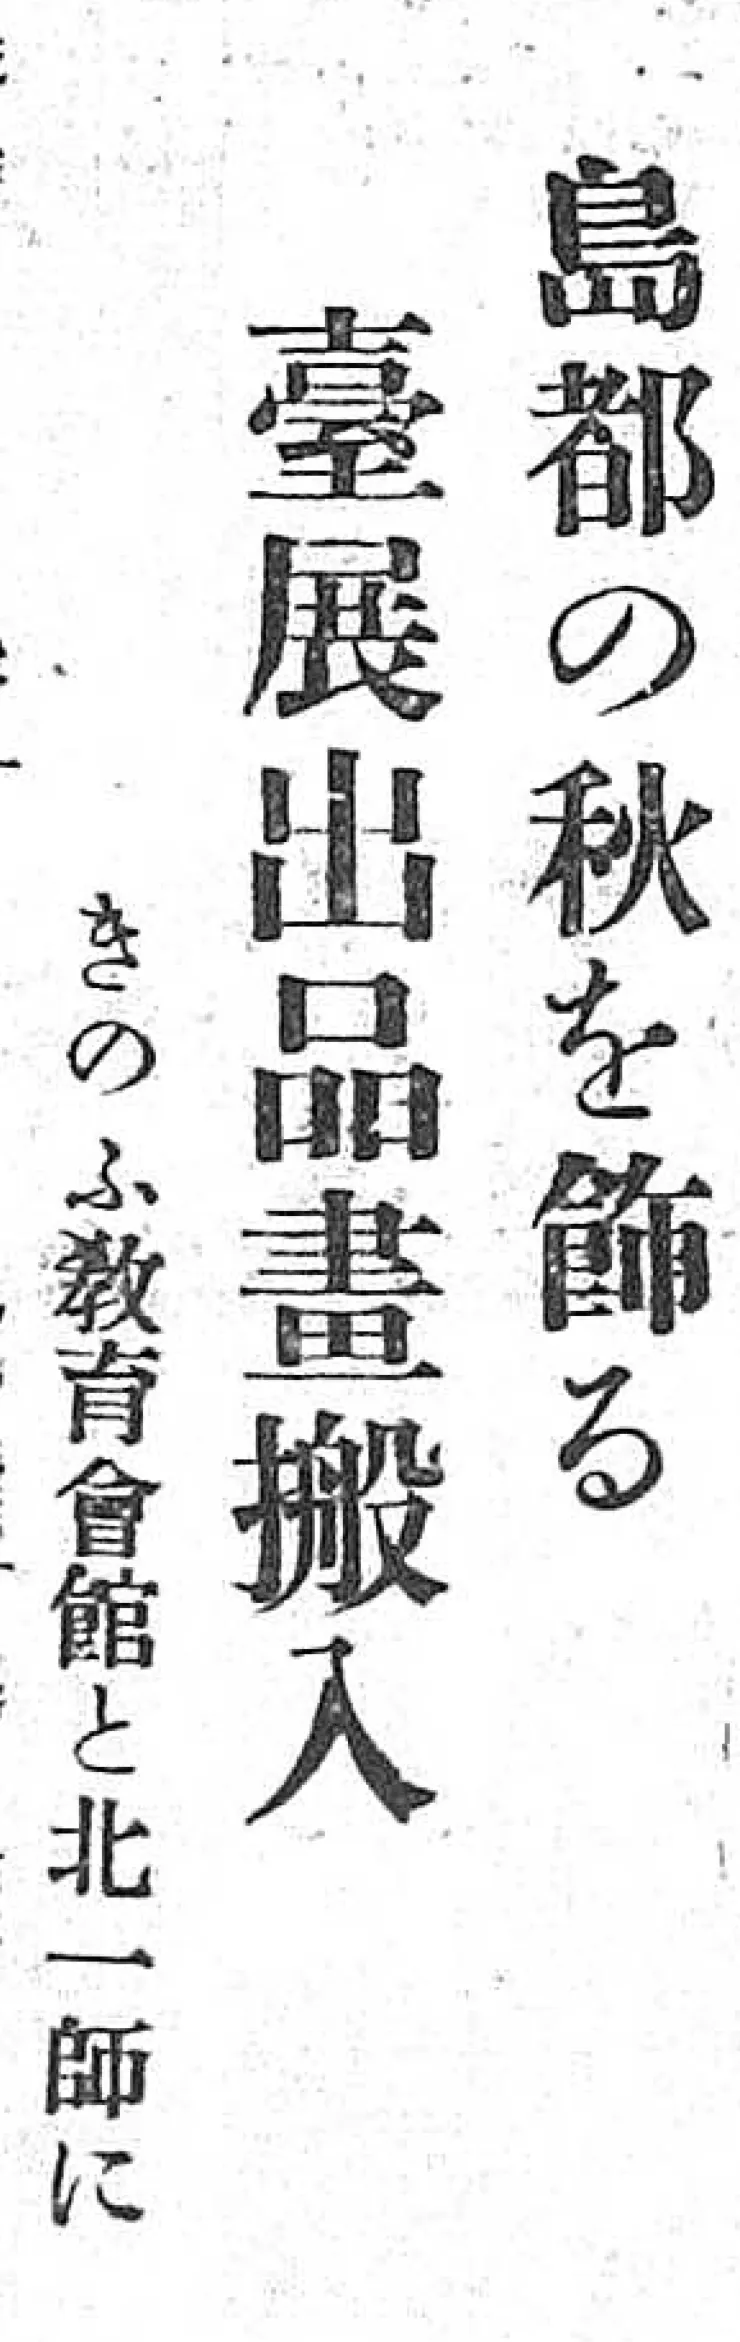 島都の秋を飾る
臺展出品畫搬入
きのふ教育會館と北一師に